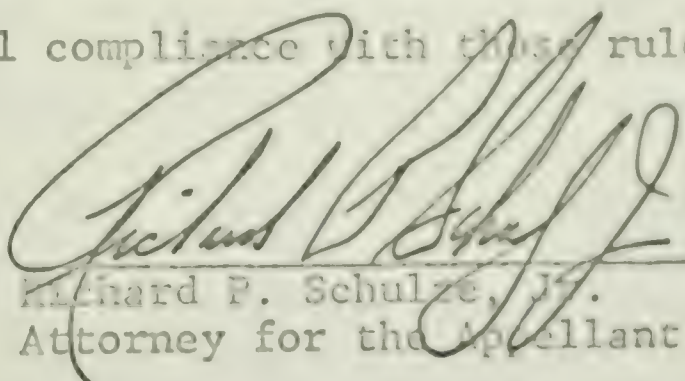 l compliance with those rule
Richard P. Schulze Jr
Richard P. Schulze, Jr.
Attorney for the Appellant